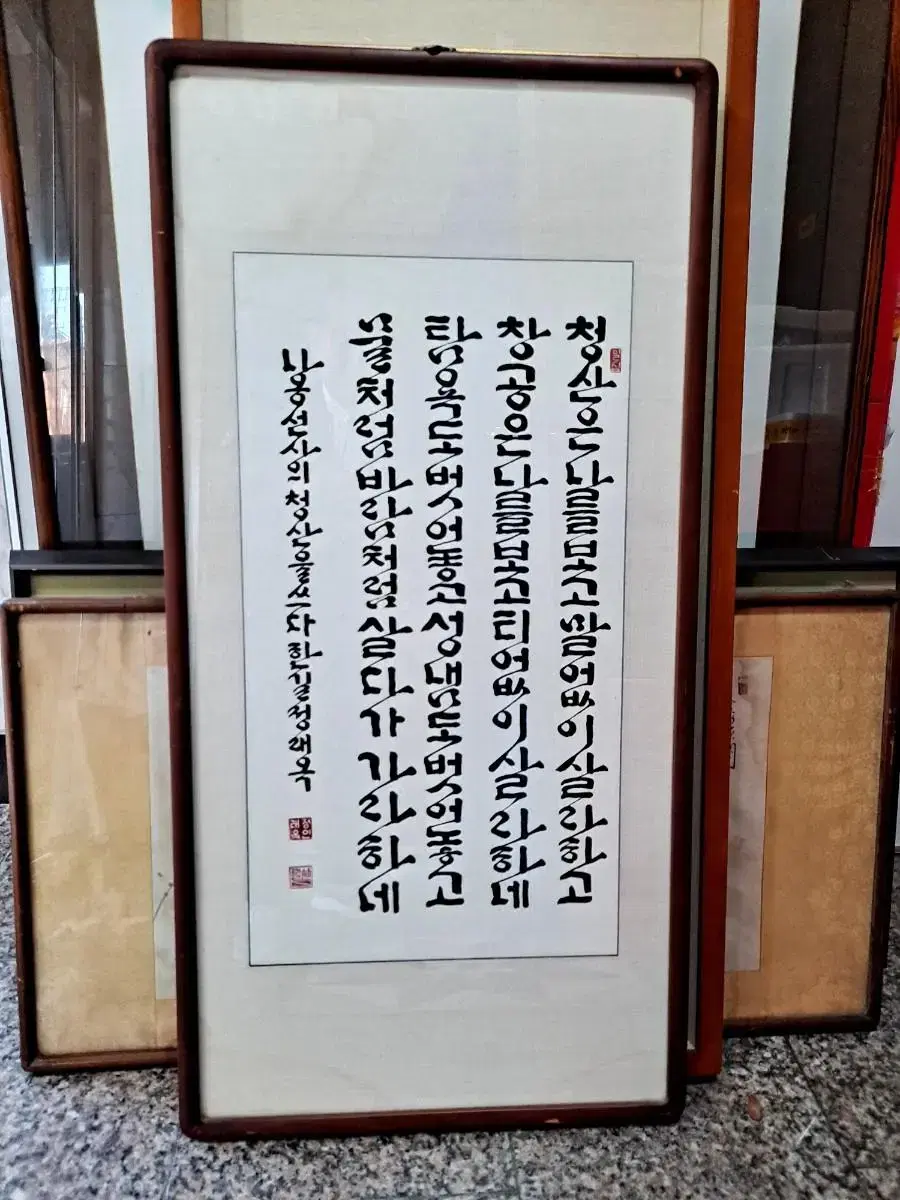 청산은 나를 보고 말없이 살라하고
창공은 나를 보고 티없이 살라하네
탐욕도 벗어놓고 성냄도 벗어놓고
물처럼 바람처럼 살다가 가라하네
나옹선사의 청산을 쓰다 한길 정래옥